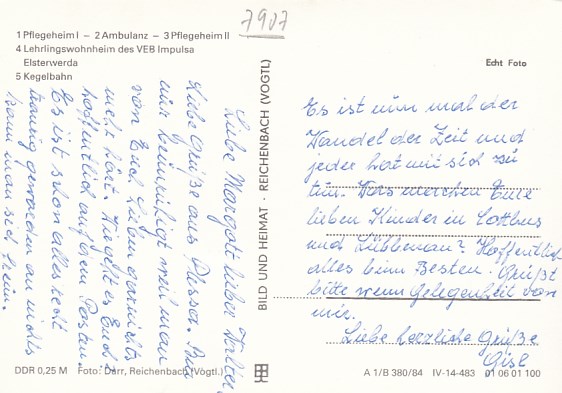 7907
1 Pflegeheim I – 2 Ambulanz – 3 Pflegeheim II
4 Lehrlingswohnheim des VEB Impulsa
Elsterwerda
5 Kegelbahn
Liebe Margott lieber Walter,
Liebe Grüße aus Plessa. Bin
nur beunruhigt weil man
von Euch Lieben garnichts
mehr hört. Wie geht es Euch?
hoffentlich auf dem Posten.
Es ist schon alles recht
traurig geworden an nichts
kann man sich freun.
BILD UND HEIMAT · REICHENBACH (VOGTL)
Echt Foto
Es ist nun mal der
Wandel der Zeit und
jeder hat mit sich zu
tun. Was machen Eure
lieben Kinder in Cottbus
und Lübbenau? Hoffentlich
alles beim Besten. Grüßt
bitte wenn Gelegenheit von
mir.
Liebe herzliche Grüße
Gisl
DDR 0,25 M Foto: Darr, Reichenbach (Vogtl.)
A 1/B 380/84 IV-14-483 01 06 01 100